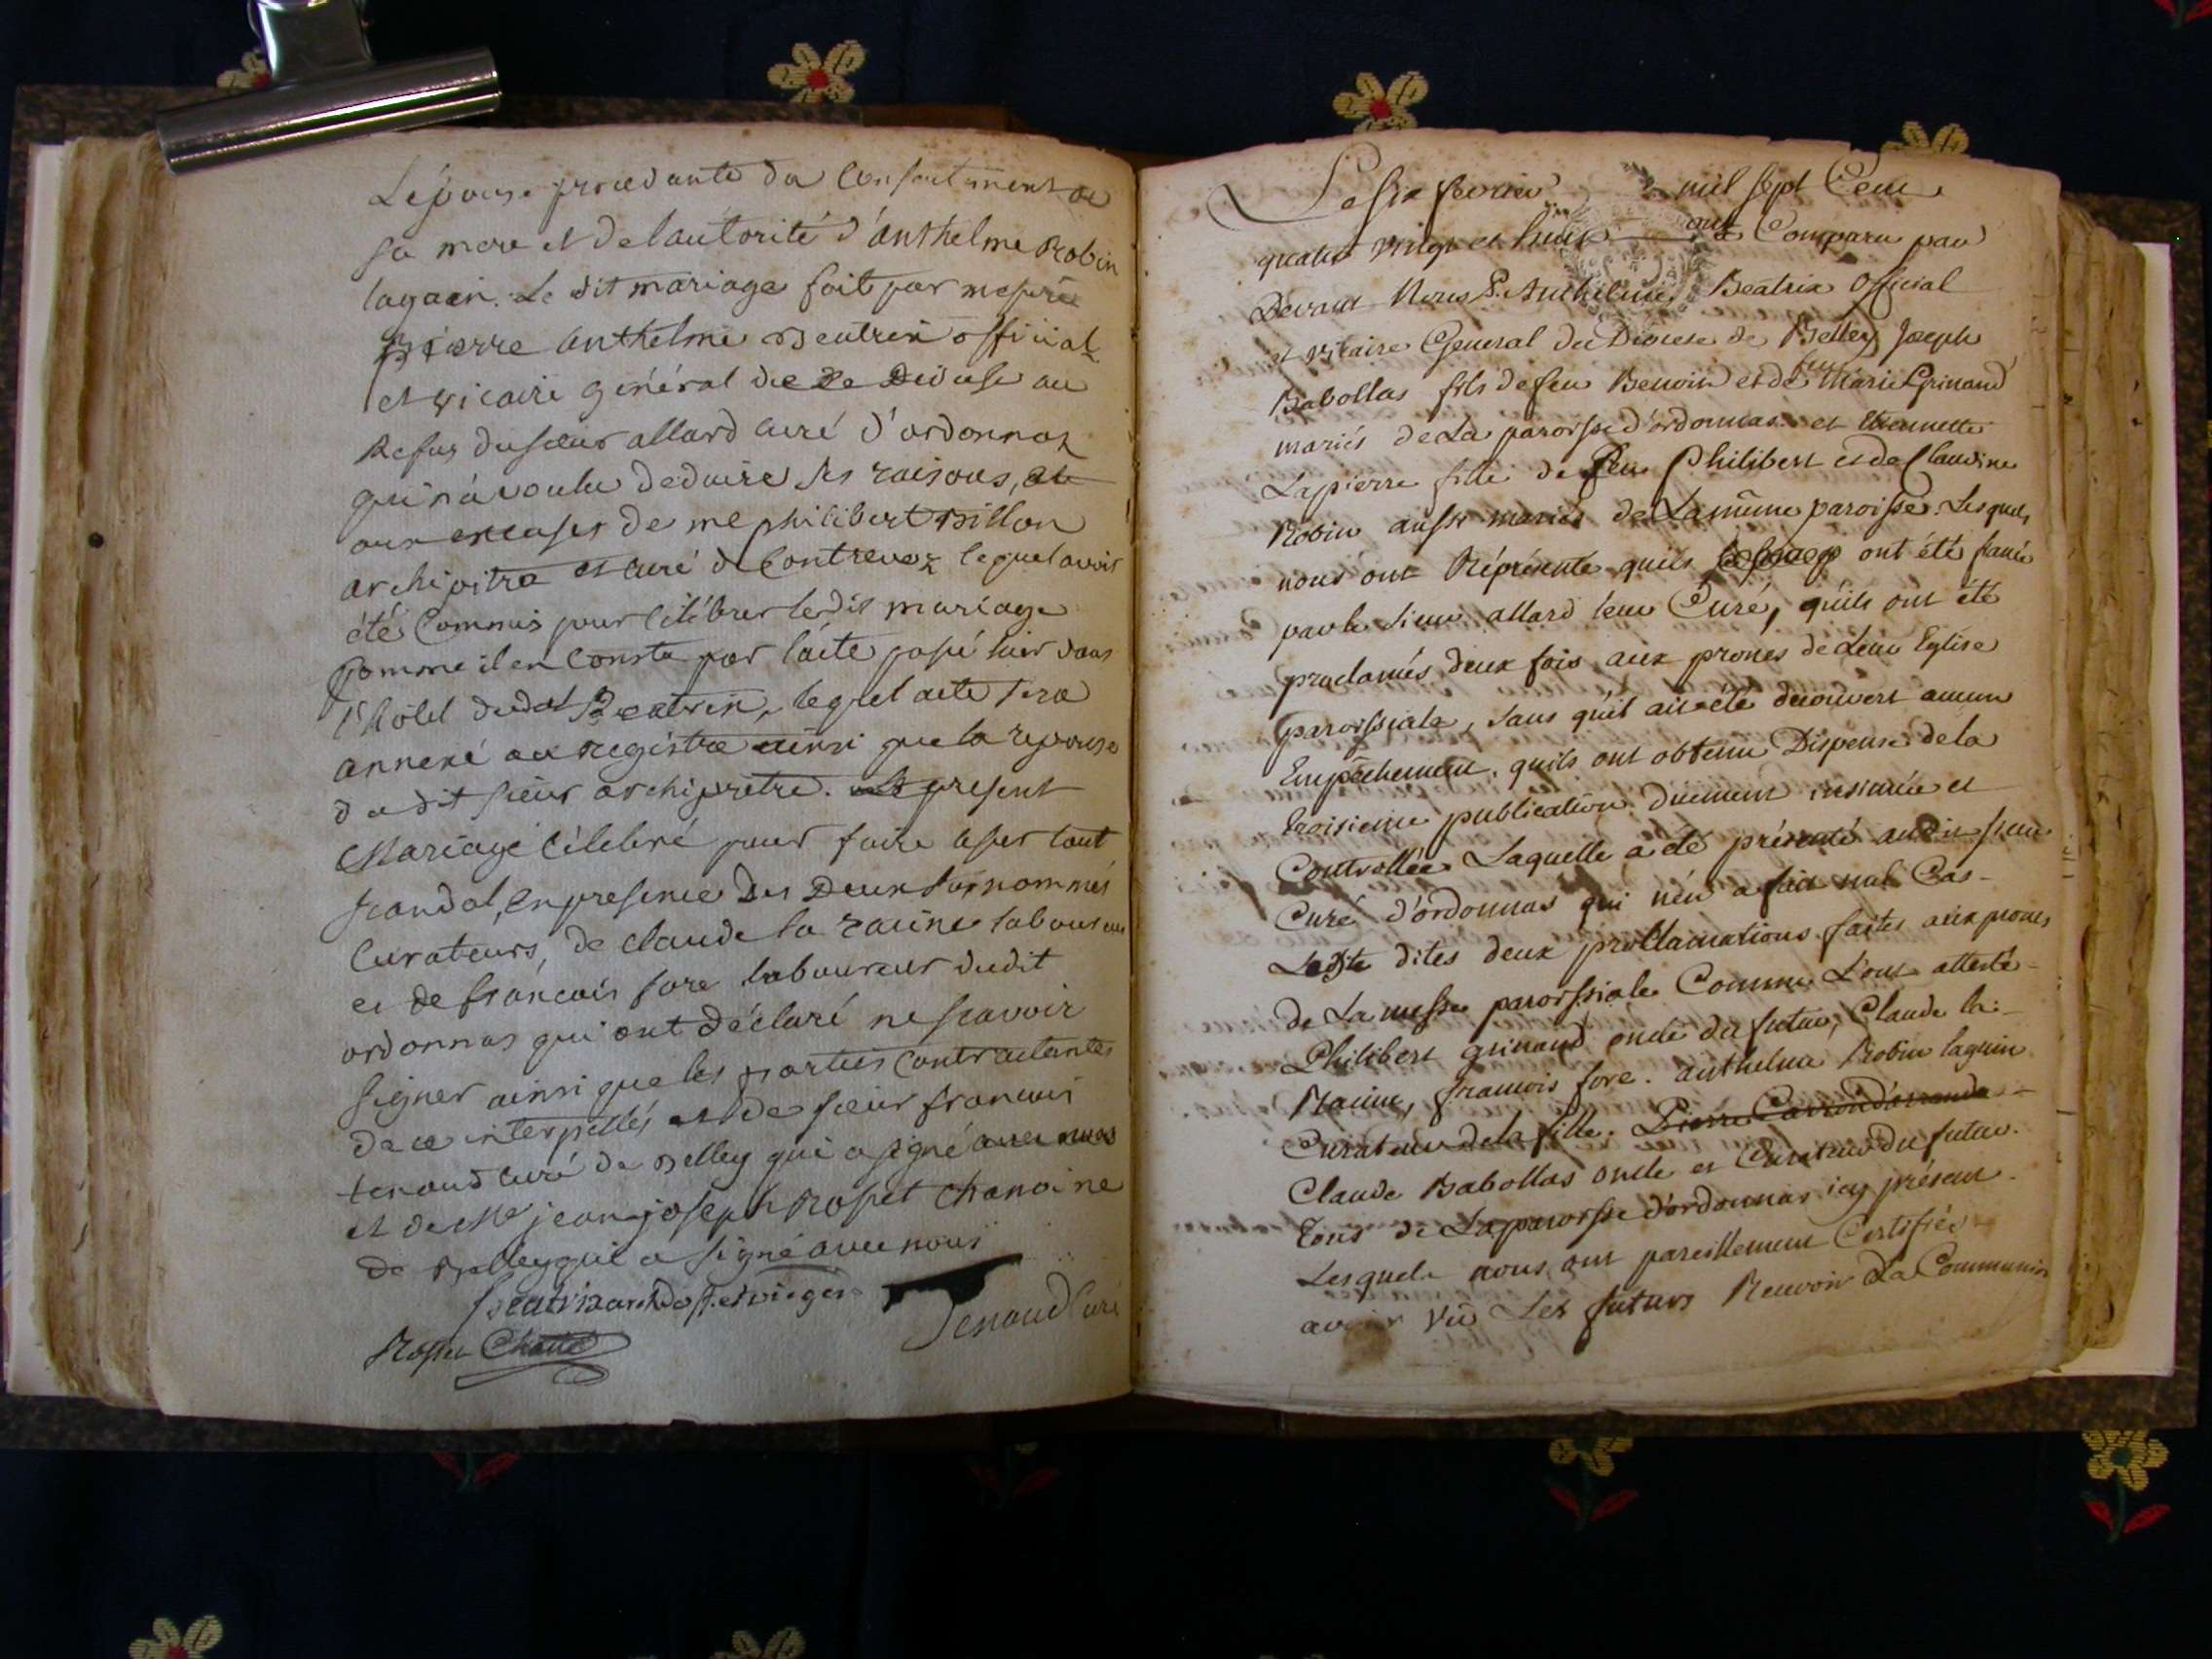 L'épouse procedante du Consentement de
sa mere et de l'autorité d'anthelme Robin
laguin. Le dit mariage fait par
pierre anthelme Beatrix official
et vicaire général de ce Diocese au
Refus du sieur allard curé d'ordonnaz
qui n'a voulu deduire ses raisons, et
aux excuses de me philibert Billon
archiprtre et curé de Contrevoz lequel avoit
été Commis pour célébrer ledit mariage
comme il en Conste par l'acte passé hier dans
l'hôtel dudt Beatrix, lequel acte sera
annexé au registre ainsi que la reponse
du dit sieur archiprêtre. Le present
Mariage Célebré pour faire cesser tout
scandal, en presence des Deux susnommés
Curateurs, de claude la racine laboureur
et de francois fore laboureur dudit
ordonnas qui ont déclaré ne scavoir
signer ainsi que les parties contractantes
de ce interpellés et de sieur francois
tenand curé de Belley qui a signé avec nous
et de Me jean joseph Rosset chanoine
de Belley qui a signé avec nous
Beatrix off. et vic. gen.
Rosset Channe Tenand curé
Le six fevrier mil sept Cent
quatre vingt et huit ont Comparu par
Devant Nous P. Anthelme Beatrix Official
et Vicaire General du Diocese de Belley Joseph
Babollas fils de feu Benoit et de feue Marie Grinand
mariés de La paroisse d'ordonnas et Etiennette
Lapierre fille de feu Philibert et de Claudine
Robin aussi mariés de La même paroisse. Lesquels
nous ont Réprésenté qu'ils ont été fiancés
par le Sieur allard leur Curé, qu'ils ont été
proclamés deux fois aux prones de Leur Eglise
paroissiale, sans qu'il ait été decouvert aucun
Empêchement, qu'ils ont obtenu Dispense de la
troisieme publication duement insinuée et
Controllée Laquelle a été présenté audit sieur
Curé d'ordonnas qui n'en a fait nul Cas -
Les dites deux proclamations faites aux prones
de La messe paroissiale Comme L'ont attesté -
Philibert grinand oncle du futur, Claude la -
Racine, francois fore. anthelme Robin laguin
Curateur de la fille. Pierre Carrond'arrandas -
Claude Babollas oncle et Curateur du futur.
tous de La paroisse d'ordonnas icy présent -
Lesquels nous ont pareillement Certifiés
avoir vû Les futurs Recevoir La Communion